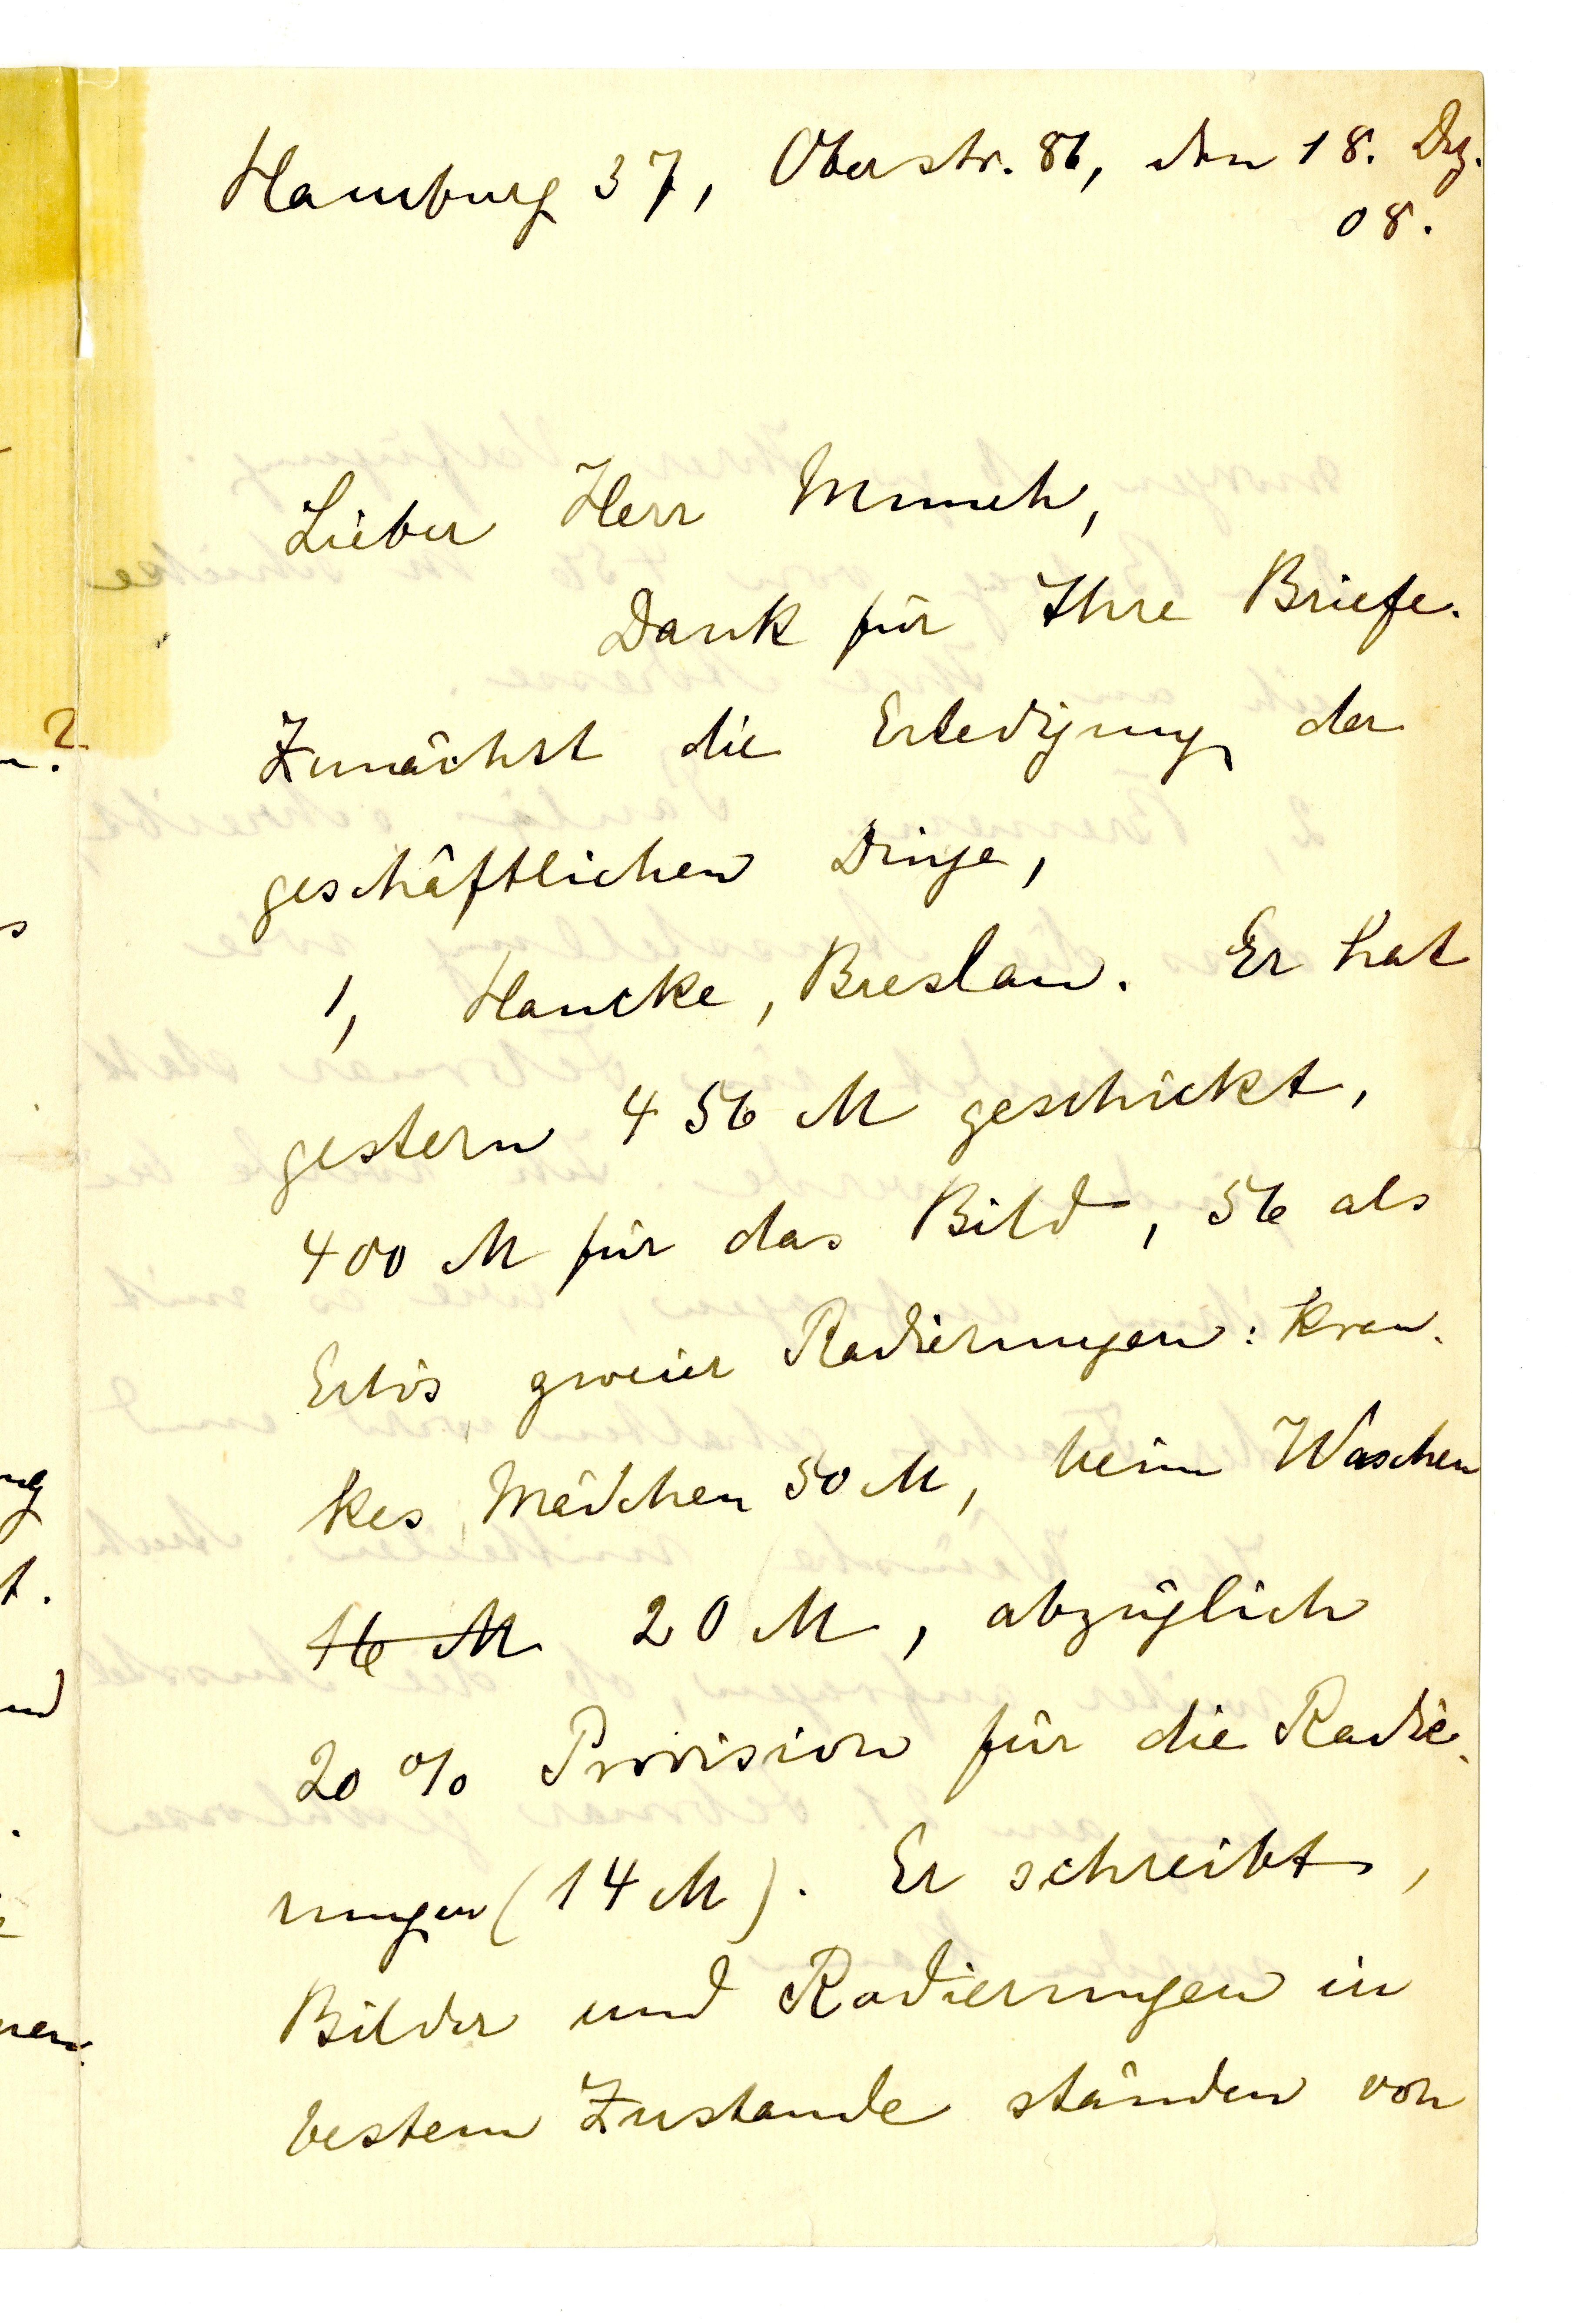 Hamburg 37, Oberstr. 86, den 18. Dez.
08.
Lieber Herr Munch,
Dank für Ihre Briefe.
Zunächst die Erledigung der
geschäftlichen Dinge,
1, Hancke, Breslau. Er hat
gestern 456 M geschickt,
400 M für das Bild, 56 als
Erlös zweier Radierungen: Kran-
kes Mädchen 50 M, beim Waschen
16 M 20 M, abzüglich
20 % Provision für die Radie-
rungen (14 M). Er schreibt,
Bilder und Radierungen in
bestem Zustande ständen von